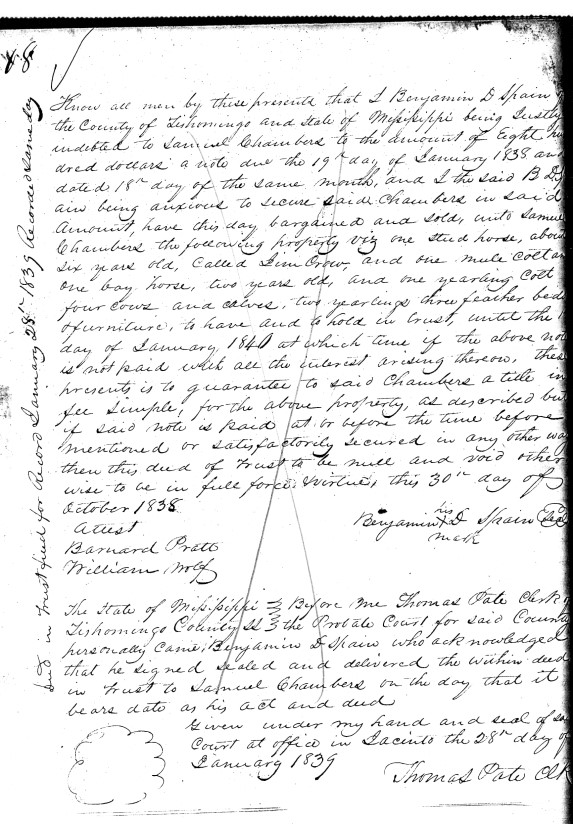 48
Deed in Trust filed for Record January 28th 1839 Recorded same day
Know all men by these presents that I Benjamin D Spain
the County of Tishomingo and State of Mississippi being Justly
indebted to Samuel Chambers to the amount of Eight hun
dred dollars a note due the 19th day of January 1838 and
dated 18th day of the same month, and I the said B D Sp
ain being anxious to secure said Chambers in said
Amount, have this day bargained and sold, unto Samuel
Chambers the following property viz one stud horse, about
six years old, Called Jim Crow, and one mule Colt an
one bay horse, two years old, and one yearling Colt
four cows and calves, two yearlings three feather bed
&furniture, to have and to hold in trust, until the 1
day of January 1840 at which time if the above not
is not paid with all the interest arising thereon, these
presents is to guarantee to said Chambers a title in
fee Simple, for the above property, as described but
if said note is paid at or before the time before
mentioned or satisfactorily secured in any other way
then this deed of Trust to be null and void other
wise to be in full force & virtue, this 30th day of
October 1838
Attest
Benjamin his X mark D Spain Seal
Barnard Pratt
William Wolf
The State of Mississippi } Before me Thomas Pate Clerk
Tishomingo County SS } the Probate Court for said County
personally came, Benjamin D Spain who acknowledged
that he signed sealed and delivered the within deed
in Trust to Samuel Chambers on the day that it
bears date as his act and deed
Given under my hand and seal of sa
Court at office in Jacinto the 28th day of
January 1839
Thomas Pate Clk